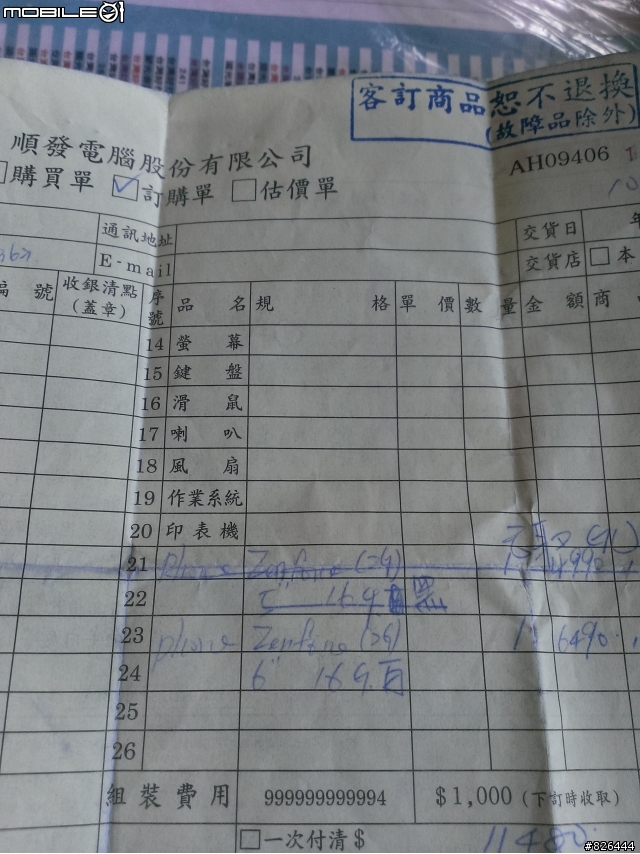 MOBILE01
客訂商品恕不退換
(故障品除外)
順發電腦股份有限公司
AH09406
購買單 訂購單 估價單
通訊地址
交貨日 年
E-mail
交貨店 本
編號 收銀清點(蓋章) 序號 品名 規格 單價 數量 金額 商
14 螢幕
15 鍵盤
16 滑鼠
17 喇叭
18 風扇
19 作業系統
20 印表機
21 phone Zenfone (2G) 1 4990
22 5" 16G 黑
23 phone Zenfone (2G) 1 6490
24 6" 16G 白
25
26
組裝費用 999999999994 $1,000 (下訂時收取)
一次付清$ 11480
#826444